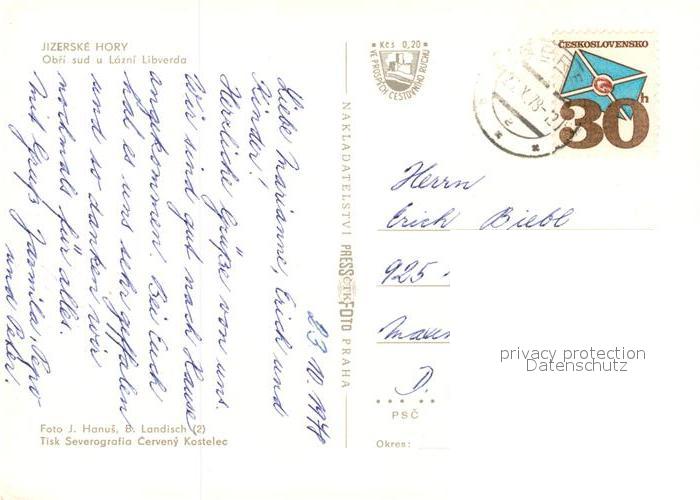 JIZERSKÉ HORY
Obří sud u Lázní Libverda
23. IV. 1978
Liebe Marianne, Erich und
Kinder!
Herzliche Grüße von uns.
Wir sind gut nach Hause
angekommen. Bei Euch
hat es uns sehr gefallen
und so danken wir
nochmals für alles.
Mit Gruß Jarmila, Pepo
und Peter.
Foto J. Hanuš, B. Landisch (2)
Tisk Severografia Červený Kostelec
NAKLADATELSTVÍ PRESSFOTO PRAHA
ČTK
Kčs 0,20
VE PROSPĚCH CESTOVNÍHO RUCHU
ČESKOSLOVENSKO
30h
Herrn
Erich Biebl
925
D.
PSČ
Okres:
privacy protection
Datenschutz